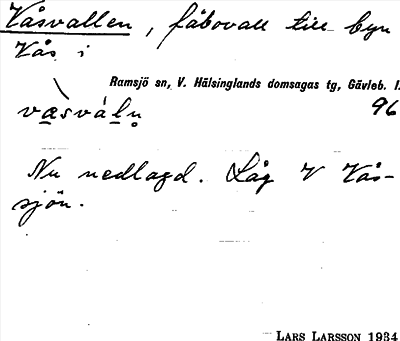 Våsvallen, fåbovall till byn
Vås i
Ramsjö sn, V. Hälsinglands domsagas tg, Gävleb. l.
væsvàln̥ 96
Nu nedlagd. Låg V Vås-
sjön.
LARS LARSSON 1934